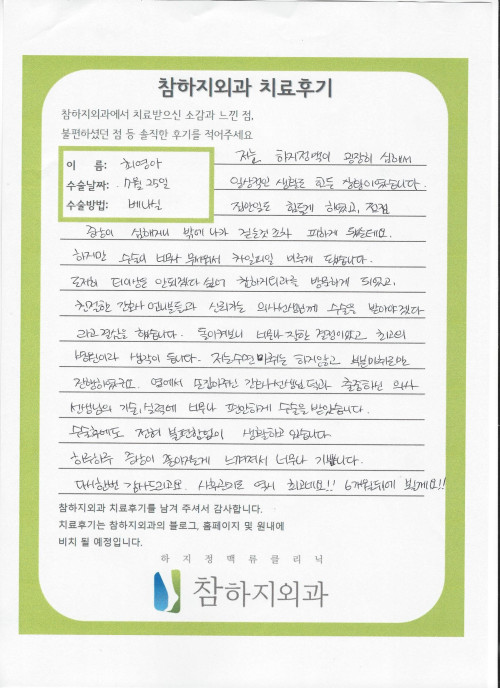 참하지외과 치료후기
참하지외과에서 치료받으신 소감과 느낀 점,
불편하셨던 점 등 솔직한 후기를 적어주세요
이 름: 최영아
수술날짜: 7월 25일
수술방법: 베나실
저는 하지정맥이 굉장히 심해서
일상적인 생활도 힘든 상태였습니다.
집안일도 힘들게 하였고, 점점
증상이 심해지니 밖에 나가 걷는것 조차 피하게 됐는데요.
하지만 수술이 너무나 무서워서 차일피일 미루게 됐습니다.
도저히 더이상은 안되겠다 싶어 참하지외과를 방문하게 되었고,
친절한 간호사 언니분들과 신뢰가는 의사선생님께 수술을 받아야겠다
라고 결심을 했습니다. 돌이켜보니 너무나 잘한 결정이었고 최고의
병원이라 생각이 듭니다. 저는 수면마취는 하지않고 부분마취로만
진행하였구요. 옆에서 손잡아주신 간호사선생님들과 출중하신 의사
선생님의 기술, 실력에 너무나 편안하게 수술을 받았습니다.
수술후에도 전혀 불편함없이 생활하고 있습니다
하루하루 증상이 좋아지는게 느껴져서 너무나 기쁩니다.
다시한번 감사드리고요. 사후관리도 역시 최고네요!! 6개월뒤에 뵐게요!!
참하지외과 치료후기를 남겨 주셔서 감사합니다.
치료후기는 참하지외과의 블로그, 홈페이지 및 원내에
비치 될 예정입니다.
하지정맥류클리닉
참하지외과